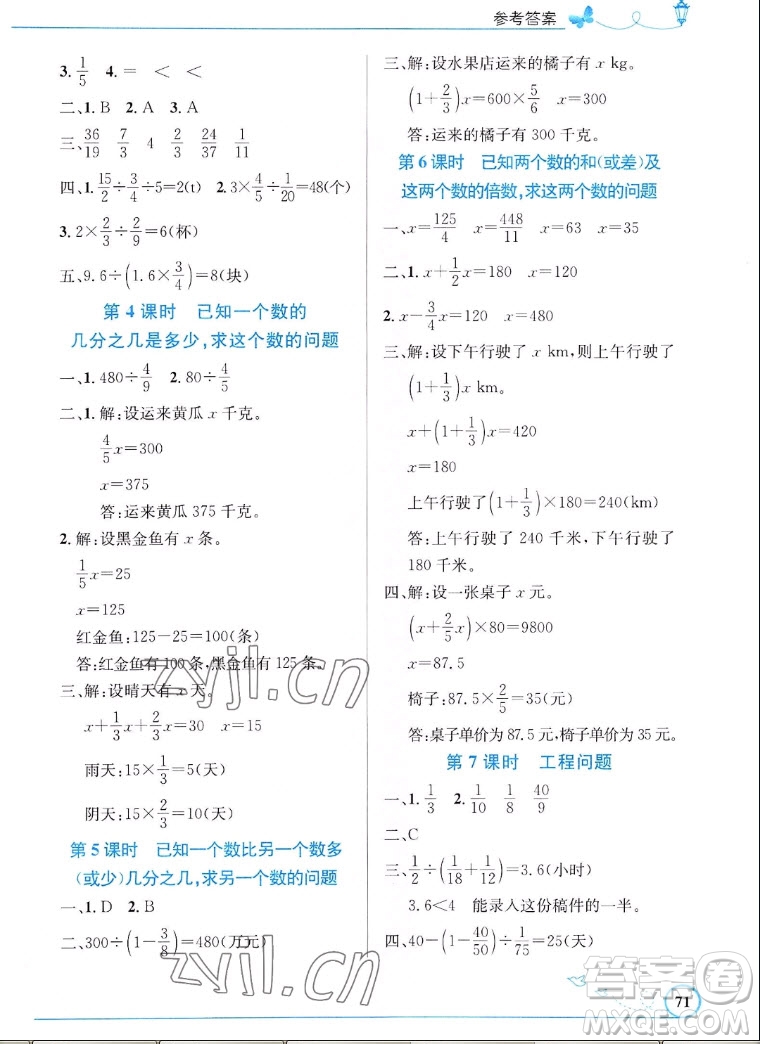 参考答案
3. 1/5 4. = < <
二、1. B 2. A 3. A
三、36/19 7/3 4 2/3 24/37 1/11
四、1. 15/2÷3/4÷5=2(t) 2. 3×4/5÷1/20=48(个)
3. 2×2/3÷2/9=6(杯)
五、9.6÷(1.6×3/4)=8(块)
第 4 课时 已知一个数的
几分之几是多少,求这个数的问题
一、1. 480÷4/9 2. 80÷4/5
二、1. 解:设运来黄瓜 x 千克。
4/5x=300
x=375
答:运来黄瓜 375 千克。
2. 解:设黑金鱼有 x 条。
1/5x=25
x=125
红金鱼:125-25=100(条)
答:红金鱼有 100 条,黑金鱼有 125 条。
三、解:设晴天有 x 天。
x+1/3x+2/3x=30 x=15
雨天:15×1/3=5(天)
阴天:15×2/3=10(天)
第 5 课时 已知一个数比另一个数多
(或少)几分之几,求另一个数的问题
一、1. D 2. B
二、300÷(1-3/8)=480(万元)
三、解:设水果店运来的橘子有 x kg。
(1+2/3)x=600×5/6 x=300
答:运来的橘子有 300 千克。
第 6 课时 已知两个数的和(或差)及
这两个数的倍数,求这两个数的问题
一、x=125/4 x=448/11 x=63 x=35
二、1. x+1/2x=180 x=120
2. x-3/4x=120 x=480
三、解:设下午行驶了 x km,则上午行驶了
(1+1/3)x km。
x+(1+1/3)x=420
x=180
上午行驶了(1+1/3)×180=240(km)
答:上午行驶了 240 千米,下午行驶了
180 千米。
四、解:设一张桌子 x 元。
(x+2/5x)×80=9800
x=87.5
椅子:87.5×2/5=35(元)
答:桌子单价为 87.5 元,椅子单价为 35 元。
第 7 课时 工程问题
一、1. 1/3 2. 1/10 1/8 40/9
二、C
三、1/2÷(1/18+1/12)=3.6(小时)
3.6<4 能录入这份稿件的一半。
四、40-(1-40/50)÷1/75=25(天)
71
zyjl.cn
zyjl.cn
答案圈
MXQE.COM